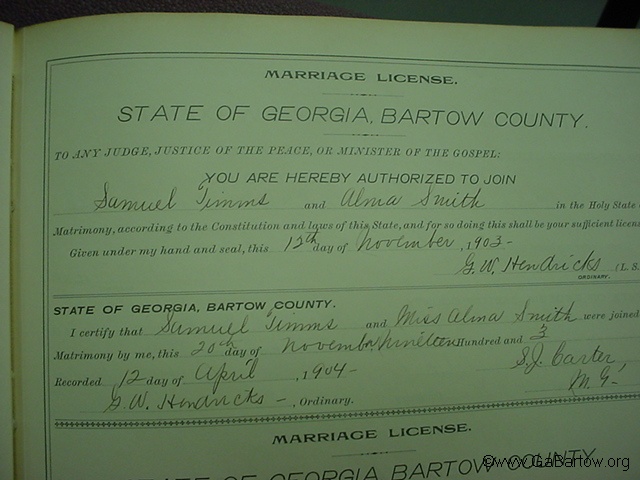 MARRIAGE LICENSE.
STATE OF GEORGIA, BARTOW COUNTY.
TO ANY JUDGE, JUSTICE OF THE PEACE, OR MINISTER OF THE GOSPEL:
YOU ARE HEREBY AUTHORIZED TO JOIN
Samuel Timms and Alma Smith in the Holy State
Matrimony, according to the Constitution and laws of this State, and for so doing this shall be your sufficient licens
Given under my hand and seal, this 12th day of November, 1903-
G.W. Hendricks (L. S.
ORDINARY.
STATE OF GEORGIA, BARTOW COUNTY.
I certify that Samuel Timms and Miss Alma Smith were joined
Matrimony by me, this 20th day of November, Nineteen Hundred and 3
S.J. Carter,
Recorded 12 day of April, 1904-
M G-
G.W. Hendricks-, Ordinary.
MARRIAGE LICENSE.
STATE OF GEORGIA, BARTOW COUNTY.
©www.GaBartow.org